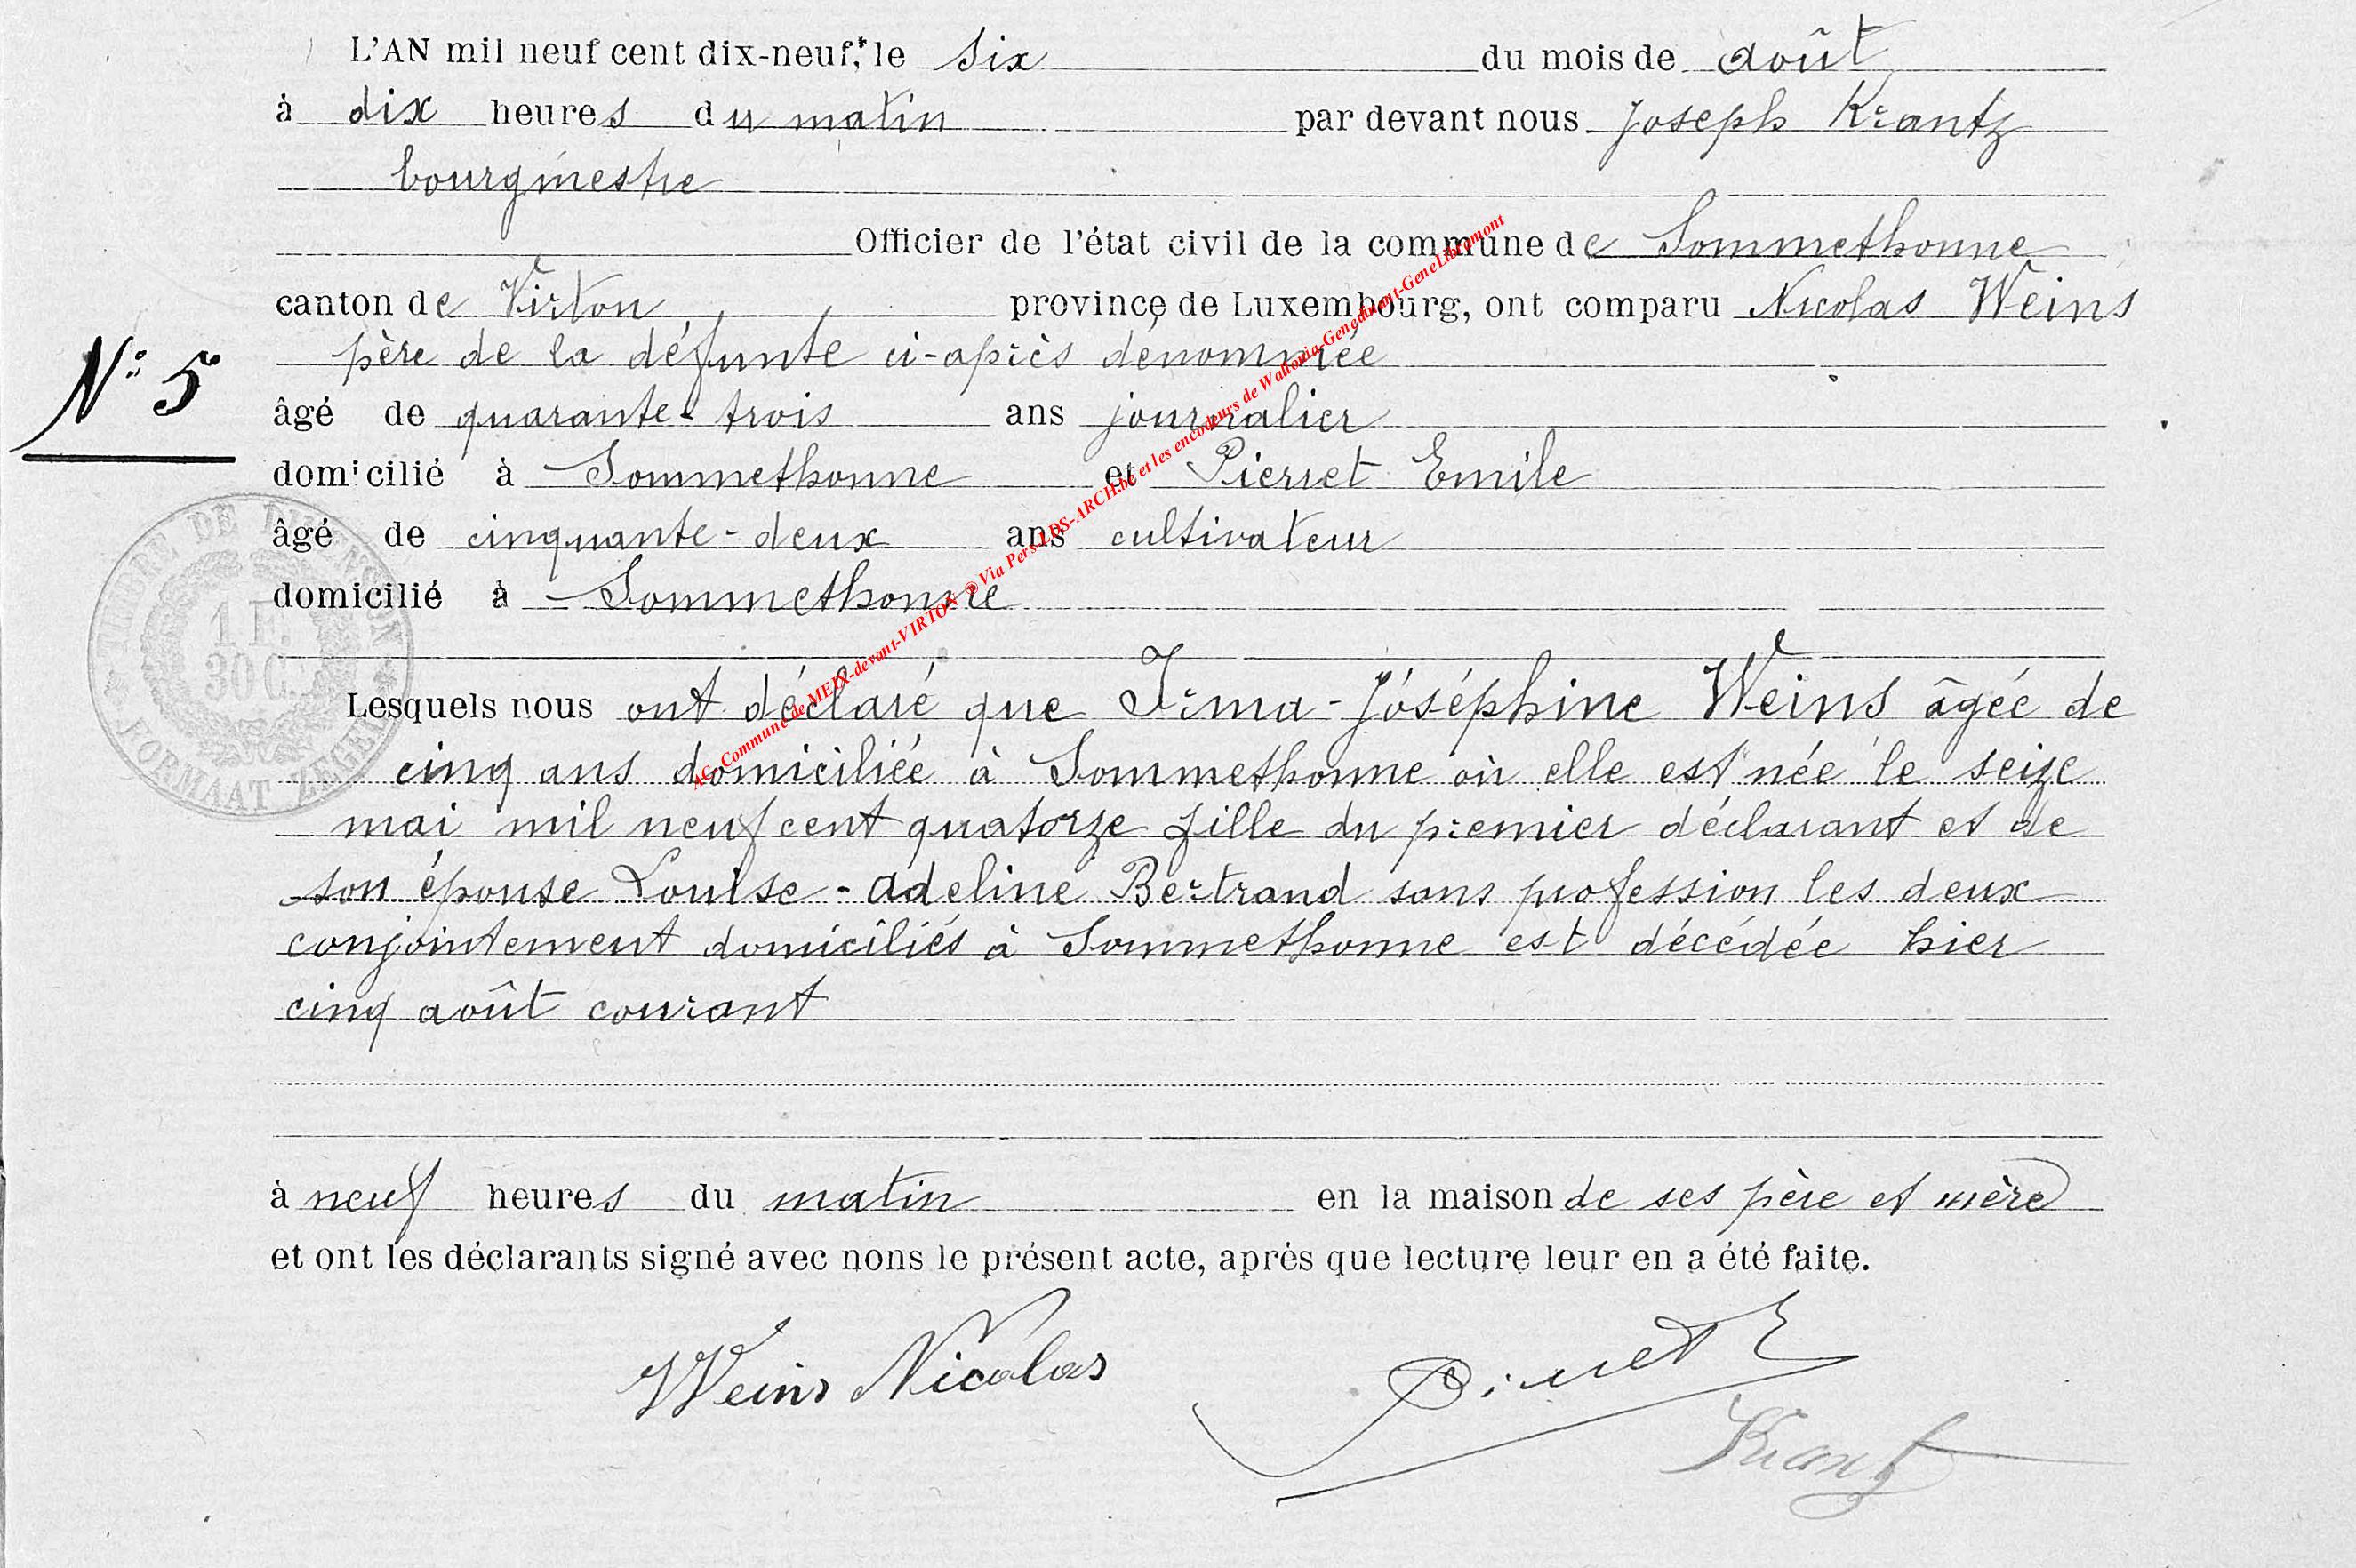 L'AN mil neuf cent dix-neuf, le six du mois de août
à dix heures du matin par devant nous Joseph Krantz
bourgmestre
Officier de l'état civil de la commune de Sommethonne
canton de Virton province de Luxembourg, ont comparu Nicolas Weins
père de la défunte ci-après dénommée
N° 5
âgé de quarante-trois ans journalier
domicilié à Sommethonne et Pierret Emile
âgé de cinquante-deux ans cultivateur
domicilié à Sommethonne
TIMBRE DE DIMENSION
1 F.
30 C.
FORMAAT ZEGEL
Lesquels nous ont déclaré que Irma-Joséphine Weins âgée de
cinq ans domiciliée à Sommethonne où elle est née le seize
mai mil neuf cent quatorze fille du premier déclarant et de
son épouse Louise-Adeline Bertrand sans profession les deux
conjointement domiciliés à Sommethonne est décédée hier
cinq août courant
à neuf heures du matin en la maison de ses père et mère
et ont les déclarants signé avec nons le présent acte, après que lecture leur en a été faite.
Weins Nicolas
Pierret E
Krantz
AG-Commune de MEIX-devant-VIRTON @ Via Pers-LDS-ARCH.be et les encodeurs de Wallonia-Genedinant-GeneLibramont